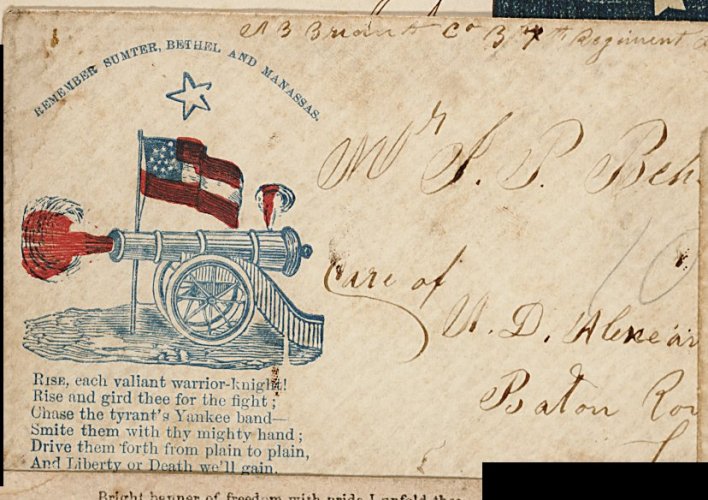 A B Briant Co B 7th Regiment
REMEMBER SUMTER, BETHEL AND MANASSAS.
Mr S. P. Beh
Care of
U. D. Alexear
Baton Rou
RISE, each valiant warrior-knight!
Rise and gird thee for the fight;
Chase the tyrant's Yankee band—
Smite them with thy mighty hand;
Drive them forth from plain to plain,
And Liberty or Death we'll gain.
Bright banner of freedom with pride I unfold thee